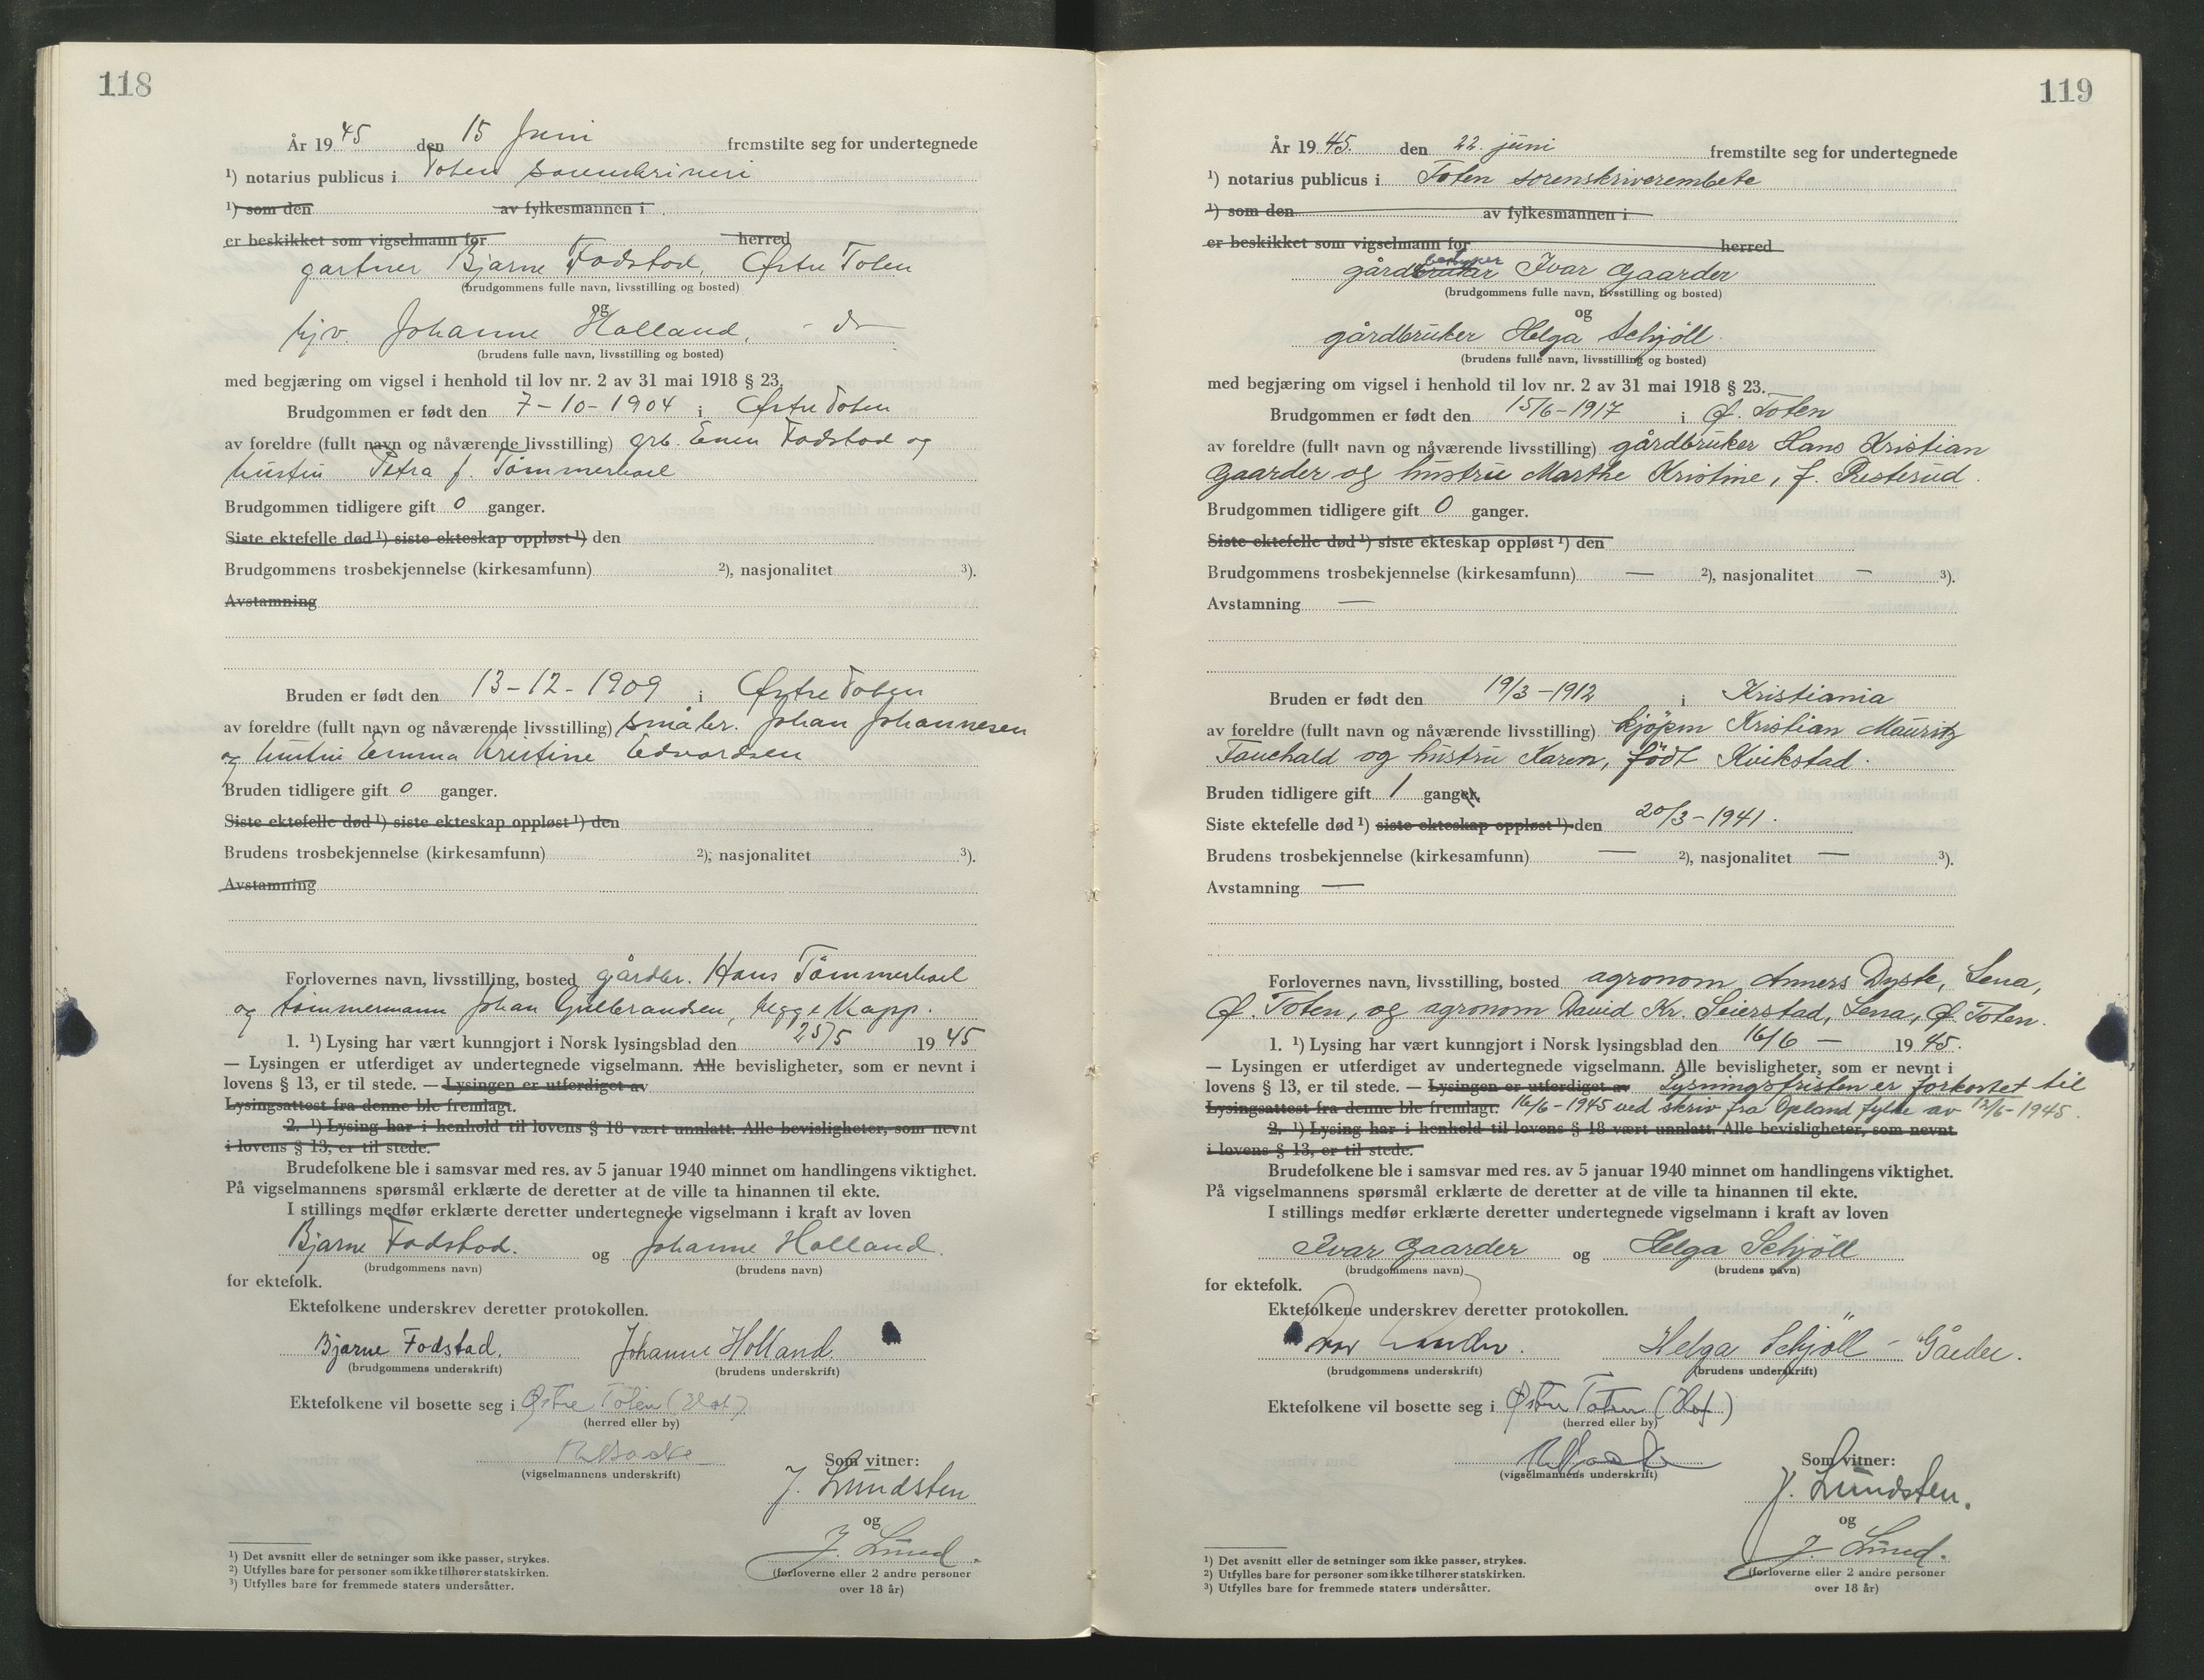 118
År 1945 den 15 Juni fremstilte seg for undertegnede
¹) notarius publicus i Toten sorenskriveri
¹) som den av fylkesmannen i
er beskikket som vigselmann for herred
gartner Bjarne Fodstad, Østre Toten
(brudgommens fulle navn, livsstilling og bosted)
og
hjv. Johanne Holland, - do -
(brudens fulle navn, livsstilling og bosted)
med begjæring om vigsel i henhold til lov nr. 2 av 31 mai 1918 § 23.
Brudgommen er født den 7-10-1904 i Østre Toten
av foreldre (fullt navn og nåværende livsstilling) grb. Even Fodstad og
hustru Petra f. Tömmerhol
Brudgommen tidligere gift 0 ganger.
Siste ektefelle død ¹) siste ekteskap oppløst ¹) den
Brudgommens trosbekjennelse (kirkesamfunn) ²), nasjonalitet ³).
Avstamning
Bruden er født den 13-12-1909 i Østre Toten
av foreldre (fullt navn og nåværende livsstilling) småbr. Johan Johannesen
og hustru Emma Kristine Edvardsen
Bruden tidligere gift 0 ganger.
Siste ektefelle død ¹) siste ekteskap oppløst ¹) den
Brudens trosbekjennelse (kirkesamfunn) ²), nasjonalitet ³).
Avstamning
Forlovernes navn, livsstilling, bosted gårdbr. Hans Tömmerhol
og tömmermann Johan Gulbrandsen, Kapp.
1. ¹) Lysing har vært kunngjort i Norsk lysingsblad den 25/5 1945
— Lysingen er utferdiget av undertegnede vigselmann. Alle bevisligheter, som er nevnt i
lovens § 13, er til stede. — Lysingen er utferdiget av
Lysingsattest fra denne ble fremlagt.
2. ¹) Lysing har i henhold til lovens § 18 vært unnlatt. Alle bevisligheter, som nevnt
i lovens § 13, er til stede.
Brudefolkene ble i samsvar med res. av 5 januar 1940 minnet om handlingens viktighet.
På vigselmannens spørsmål erklærte de deretter at de ville ta hinannen til ekte.
I stillings medfør erklærte deretter undertegnede vigselmann i kraft av loven
Bjarne Fodstad. og Johanne Holland.
(brudgommens navn) (brudens navn)
for ektefolk.
Ektefolkene underskrev deretter protokollen.
Bjarne Fodstad. Johanne Holland.
(brudgommens underskrift) (brudens underskrift)
Ektefolkene vil bosette seg i Østre Toten (Hof)
(herred eller by)
(vigselmannens underskrift)
Som vitner:
J. Lundsten
og
J. Lund.
(forloverne eller 2 andre personer
over 18 år)
¹) Det avsnitt eller de setninger som ikke passer, strykes.
²) Utfylles bare for personer som ikke tilhører statskirken.
³) Utfylles bare for fremmede staters undersåtter.
119
År 1945. den 22. juni fremstilte seg for undertegnede
¹) notarius publicus i Toten sorenskriverembete
¹) som den av fylkesmannen i
er beskikket som vigselmann for herred
gårdbruker Ivar Gaarder
(brudgommens fulle navn, livsstilling og bosted)
og
gårdbruker Helga Schjöll.
(brudens fulle navn, livsstilling og bosted)
med begjæring om vigsel i henhold til lov nr. 2 av 31 mai 1918 § 23.
Brudgommen er født den 15/6-1917 i Ø. Toten
av foreldre (fullt navn og nåværende livsstilling) gårdbruker Hans Kristian
Gaarder og hustru Marthe Kristine, f. Presterud.
Brudgommen tidligere gift 0 ganger.
Siste ektefelle død ¹) siste ekteskap oppløst ¹) den
Brudgommens trosbekjennelse (kirkesamfunn) — ²), nasjonalitet — ³).
Avstamning —
Bruden er født den 19/3-1912 i Kristiania
av foreldre (fullt navn og nåværende livsstilling) kjöpm Kristian Mauritz
Fauchald og hustru Karen, födt Kvikstad.
Bruden tidligere gift 1 ganger.
Siste ektefelle død ¹) siste ekteskap oppløst ¹) den 20/3-1941.
Brudens trosbekjennelse (kirkesamfunn) — ²), nasjonalitet — ³).
Avstamning —
Forlovernes navn, livsstilling, bosted agronom Anners Dyste, Lena,
Ø. Toten, og agronom David Kr. Seierstad, Lena, Ø. Toten.
1. ¹) Lysing har vært kunngjort i Norsk lysingsblad den 16/6 — 1945.
— Lysingen er utferdiget av undertegnede vigselmann. Alle bevisligheter, som er nevnt i
lovens § 13, er til stede. — Lysingen er utferdiget av Lysningsfristen er forkortet til
Lysingsattest fra denne ble fremlagt. 16/6-1945 ved skriv fra Opland fylke av 12/6-1945.
2. ¹) Lysing har i henhold til lovens § 18 vært unnlatt. Alle bevisligheter, som nevnt
i lovens § 13, er til stede.
Brudefolkene ble i samsvar med res. av 5 januar 1940 minnet om handlingens viktighet.
På vigselmannens spørsmål erklærte de deretter at de ville ta hinannen til ekte.
I stillings medfør erklærte deretter undertegnede vigselmann i kraft av loven
Ivar Gaarder og Helga Schjöll
(brudgommens navn) (brudens navn)
for ektefolk.
Ektefolkene underskrev deretter protokollen.
Ivar Gaarder. Helga Schjöll - Gårder.
(brudgommens underskrift) (brudens underskrift)
Ektefolkene vil bosette seg i Østre Toten (Hof)
(herred eller by)
(vigselmannens underskrift)
Som vitner:
J. Lundsten.
og
J. Lund.
(forloverne eller 2 andre personer
over 18 år)
¹) Det avsnitt eller de setninger som ikke passer, strykes.
²) Utfylles bare for personer som ikke tilhører statskirken.
³) Utfylles bare for fremmede staters undersåtter.